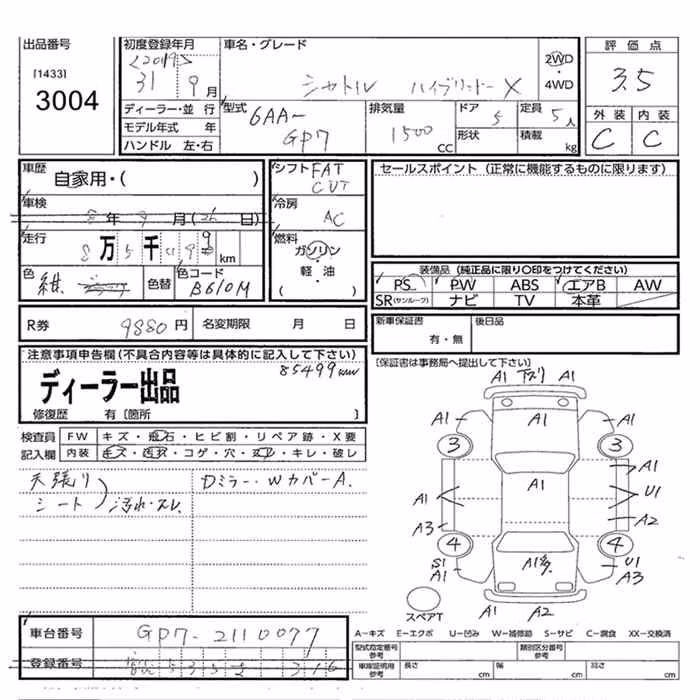 出品番号
[1433]
3004
初度登録年月
<2019>
31 9 月
車名・グレード
シャトル ハイブリッド X
2WD
・
4WD
評価点
3.5
外装 内装
C C
ディーラー・並行
モデル年式 年
ハンドル 左・右
型式
6AA-
GP7
排気量
1500 CC
ドア 5
形状
定員 5人
積載 kg
車歴
自家用・( )
車検
年 9 月( 26 日)
走行
8 万 5 千 4 9 9 km
色
紺
色替
色コード
B610M
シフト FAT
CVT
冷房
AC
燃料
ガソリン
・
軽・油
( )
セールスポイント (正常に機能するものに限ります)
装備品 (純正品に限り○印をつけてください)
PS P.W ABS エアB AW
SR(サンルーフ) ナビ TV 本革
R券 9880円 名変期限 月 日
新車保証書
有・無
後日品
[保証書は事務局へ提出して下さい]
注意事項申告欄(不具合内容等は具体的に記入して下さい)
85499km
ディーラー出品
修復歴 有 [箇所 ]
検査員
記入欄
FW キズ・飛石・ヒビ割・リペア跡・X要
内装 キズ・汚れ・コゲ・穴・スレ・キレ・破レ
天張り
シート
汚れ・スレ
Dミラー・WカバーA.
A1 下ズリ A1
A1 A1 A1
3 3
A1
A1 A1 U1
A3 A2
4 4
S1 A1 A1多 U1
A1 A3
スペアT
A1 A2
車台番号 GP7-2110077
登録番号 535 316
A-キズ E-エクボ U-凹み W-補修跡 S-サビ C-腐食 XX-交換済
型式指定番号
参考
類別区分番号
参考
車庫証明用
参考
長さ cm 幅 cm 高さ cm